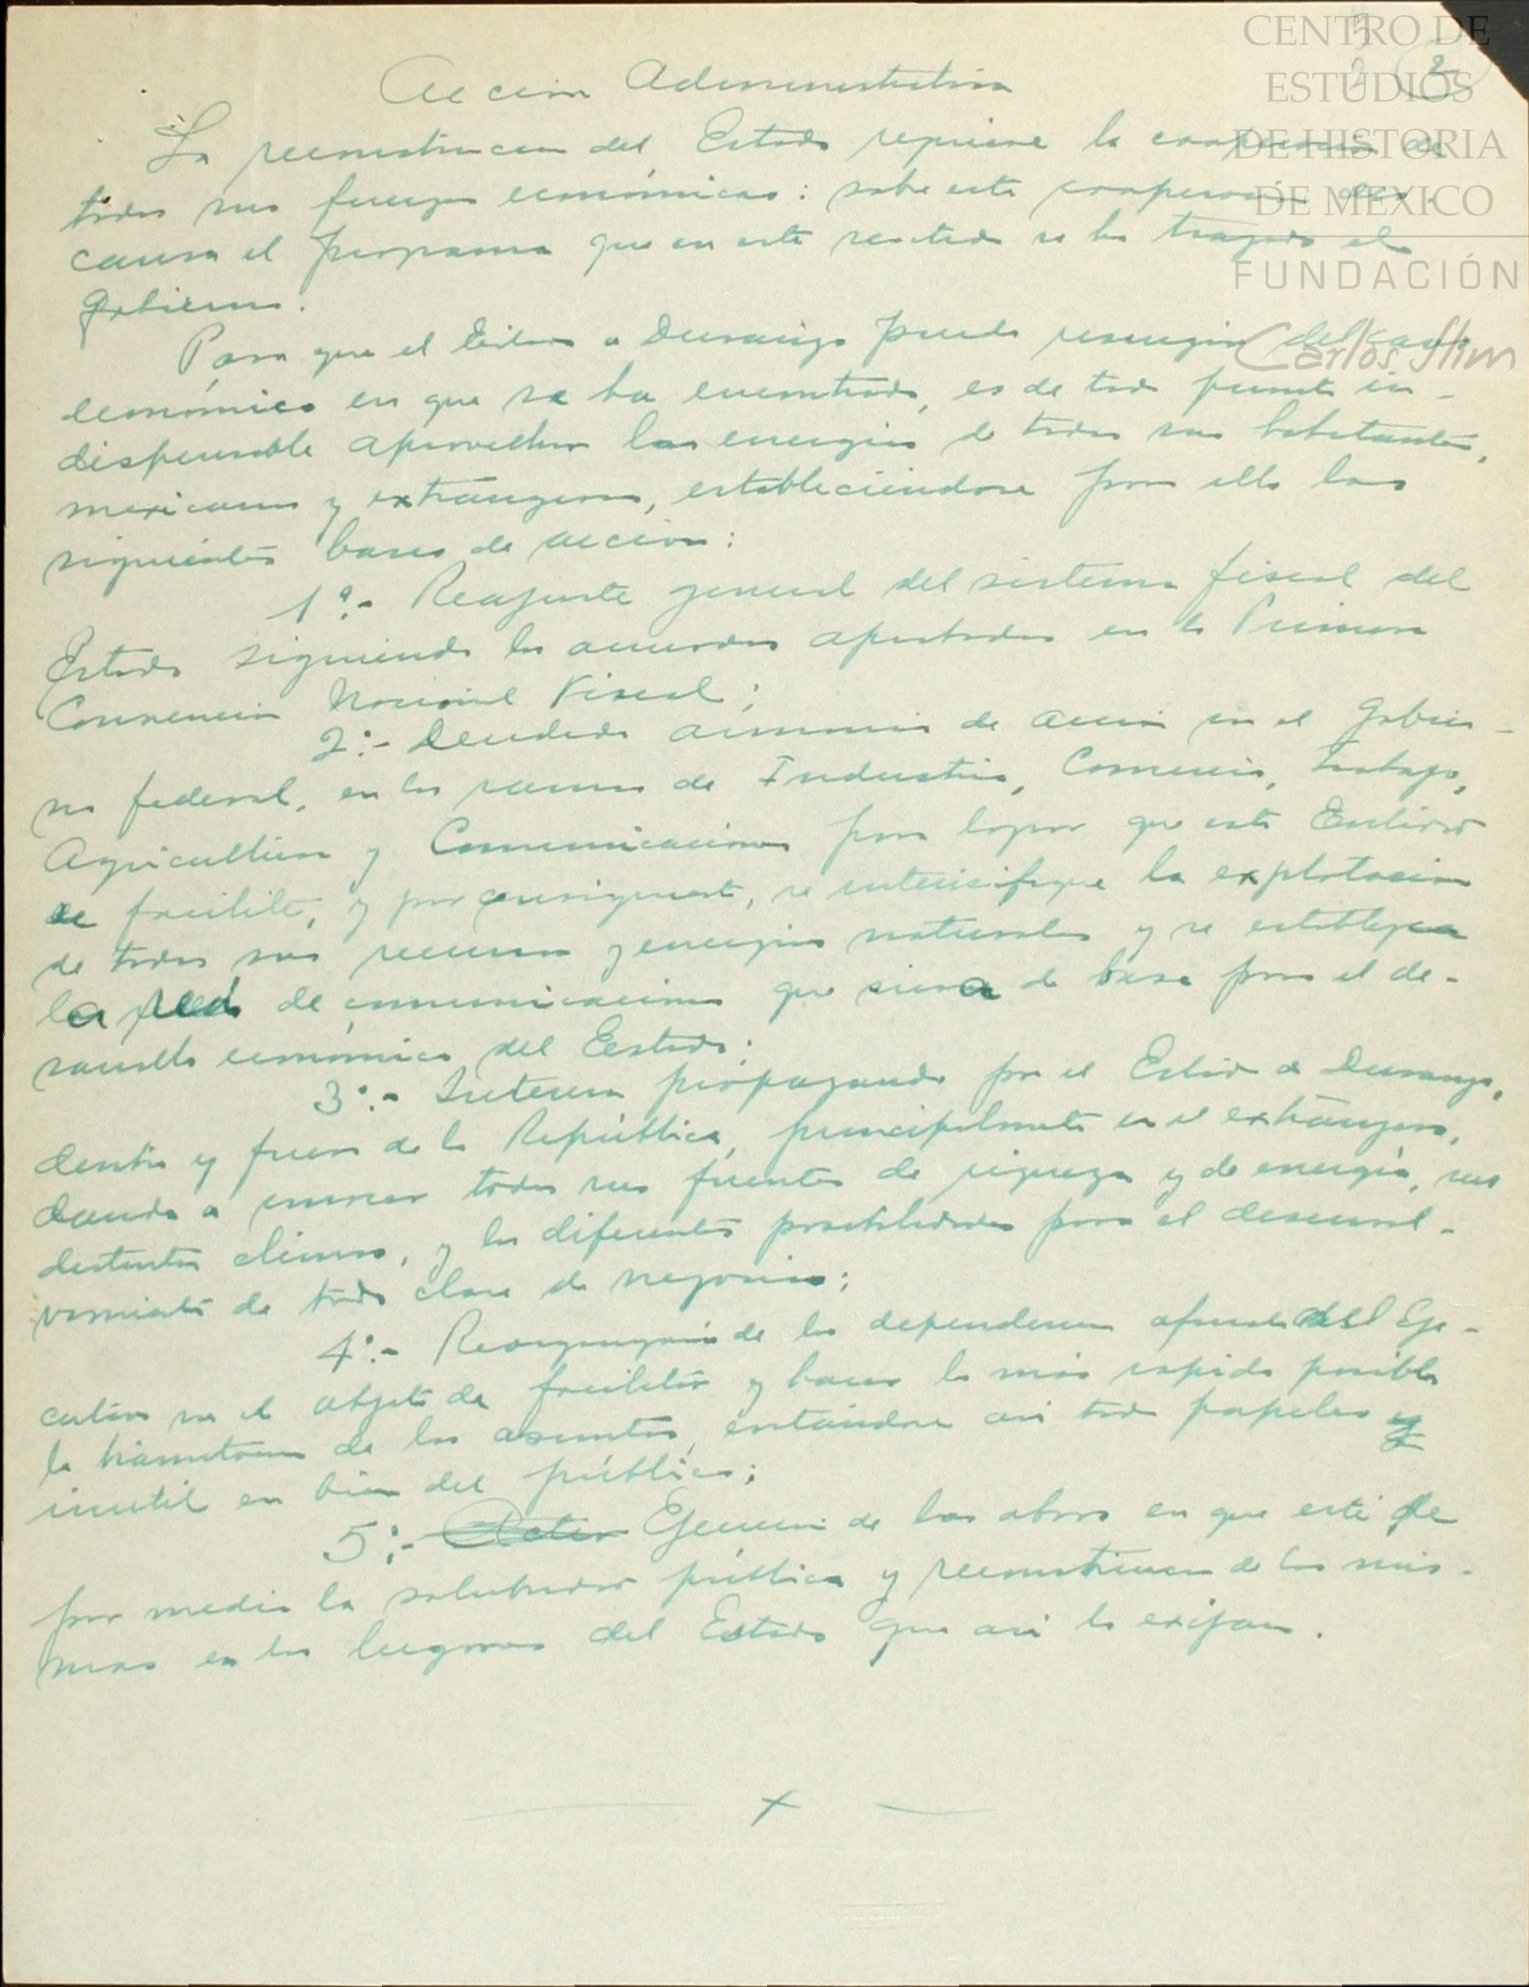 CENTRO DE
ESTUDIOS
DE HISTORIA
DE MEXICO
FUNDACIÓN
Carlos Slim
2
Acción Administrativa
La reconstrucción del Estado requiere la cooperación de
todas sus fuerzas económicas: sobre esta cooperación
causa el programa que en este sentido se ha trazado el
Gobierno.
Para que el Estado de Durango pueda resurgir del caos
económico en que se ha encontrado, es de todo punto in-
dispensable aprovechar las energías de todos sus habitantes,
mexicanos y extrangeros, estableciéndose para ello las
siguientes bases de acción:
1º.- Reajuste general del sistema fiscal del
Estado siguiendo los acuerdos aprobados en la Primera
Convención Nacional Fiscal;
2º.- Decidida armonía de acción con el Gobier-
no federal, en los ramos de Industria, Comercio, Trabajo,
Agricultura y Comunicaciones para lograr que esta Entidad
se facilite, y por consiguiente, se intensifique la explotación
de todos sus recursos y energías naturales y se establezca
la red de comunicaciones que sirva de base para el de-
sarrollo económico del Estado;
3º.- Intensa propaganda por el Estado de Durango,
dentro y fuera de la República, principalmente en el extrangero,
dando a conocer todas sus fuentes de riqueza y de energía, sus
distintos climas, y las diferentes posibilidades para el desenvol-
vimiento de toda clase de negocios;
4º.- Reorganización de las dependencias del Eje-
cutivo con el objeto de facilitar y hacer lo más rápido posible
la tramitación de los asuntos, evitándose así todo papeleo
inutil en bien del público;
5º.- Ejecución de las obras en que esté de
por medio la salubridad pública y reconstrucción de las mis-
mas en los lugares del Estado que así lo exijan.
x